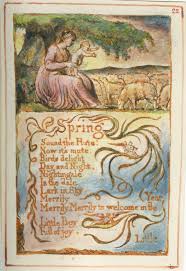 22
Spring
Sound the Flute!
Now it's mute.
Birds delight
Day and Night.
Nightingale
In the dale
Lark in Sky
Merrily
Merrily Merrily to welcome in the Year
Little Boy
Full of joy.
Little